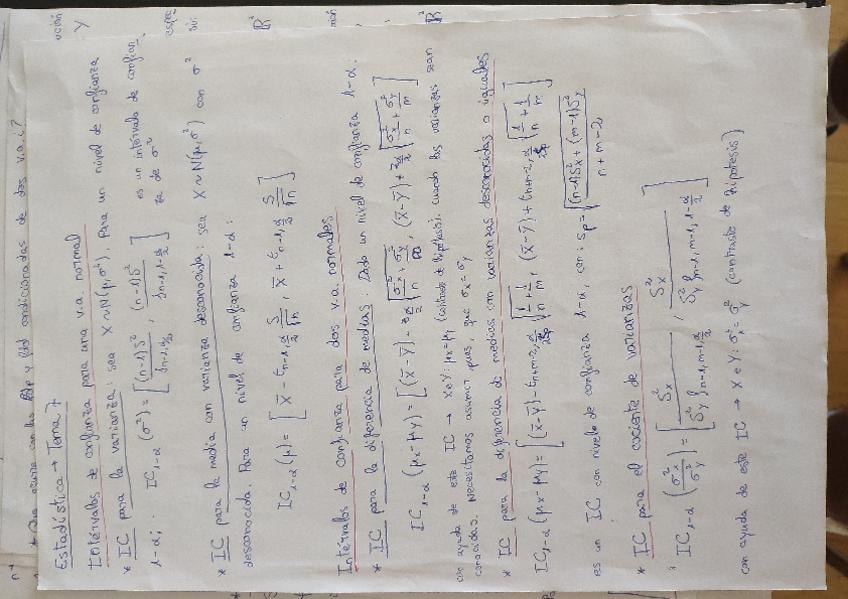 condicionadas de dos v.a.i?
Estadística → Tema 7
Intérvalos de confianza para una v.a. normal
* IC para la varianza: sea X ~ N(μ, σ²). Para un nivel de confianza
1-α; IC₁₋α (σ²) = [ (n-1)S² / , (n-1)S² / ] es un intérvalo de confian
za de σ²
* IC para la media con varianza desconocida: sea X ~ N(μ, σ²) con σ²
desconocida. Para un nivel de confianza 1-α:
IC₁₋α (μ) = [ X̄ - t n-1, α/2 S/√n , X̄ + t n-1, α/2 S/√n ]
Intérvalos de confianza para dos v.a. normales
* IC para la diferencia de medias: Dado un nivel de confianza 1-α:
IC₁₋α (μx-μy) = [ (x̄-ȳ) - z α/2 √(σ²x/n + σ²y/m) , (x̄-ȳ) + z α/2 √(σ²x/n + σ²y/m) ]
con ayuda de este IC → X e Y: μx=μy (contraste de hipótesis), cuando las varianzas sean
conocidas. Necesitamos asumir, pues, que σx = σy
* IC para la diferencia de medias con varianzas desconocidas e iguales
IC₁₋α (μx-μy) = [ (x̄-ȳ) - t n+m-2, α/2 √(1/n + 1/m) , (x̄-ȳ) + t n+m-2, α/2 √(1/n + 1/m) ]
es un IC con nivel de confianza 1-α, con: Sp = √((n-1)S²x + (m-1)S²y / n+m-2)
* IC para el cociente de varianzas
IC₁₋α (σ²x/σ²y) = [ S²x / S²y f n-1, m-1, α/2 , S²x / S²y f n-1, m-1, 1-α/2 ]
con ayuda de este IC → X e Y: σ²x = σ²y (contraste de hipótesis)